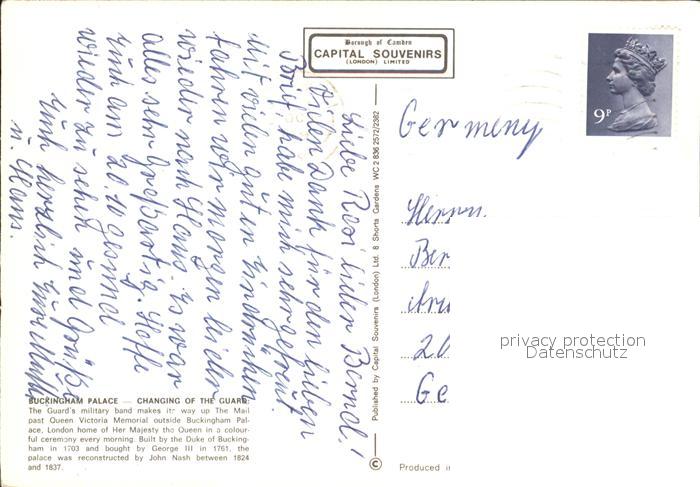 Borough of Camden
CAPITAL SOUVENIRS
(LONDON) LIMITED
9P
Germeny
Herrn.
Ber
20
Ge
privacy protection
Datenschutz
Liebe Rosi lieber Bernd!
Vielen Dank für den lieben
Brief, habe mich sehr gefreut.
Mit vielen guten Eindrücken
fahren wir morgen leider
wieder nach Haus. Es war
alles sehr großartig. Hoffe
Euch am 20.10 gesund
wieder zu sehen und Grüße
Euch herzlich Eure Mutti
u. Hans.
Published by Capital Souvenirs (London) Ltd. 8 Shorts Gardens WC2 836 2572/2382
©
BUCKINGHAM PALACE — CHANGING OF THE GUARD:
The Guard's military band makes its way up The Mall
past Queen Victoria Memorial outside Buckingham Pal-
ace, London home of Her Majesty the Queen in a colour-
ful ceremony every morning. Built by the Duke of Bucking-
ham in 1703 and bought by George III in 1761, the
palace was reconstructed by John Nash between 1824
and 1837.
Produced i